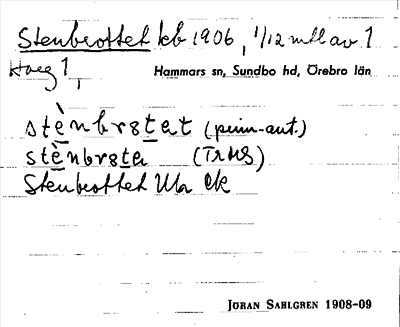 Stenbrottet kb 1906, 1/12 mtl av 1
Haeg 1,
Hammars sn, Sundbo hd, Örebro län
stènbrstet (prim-aut.)
stènbrsta (TrMS)
Stenbrottet Ula Ek
JÖRAN SAHLGREN 1908-09